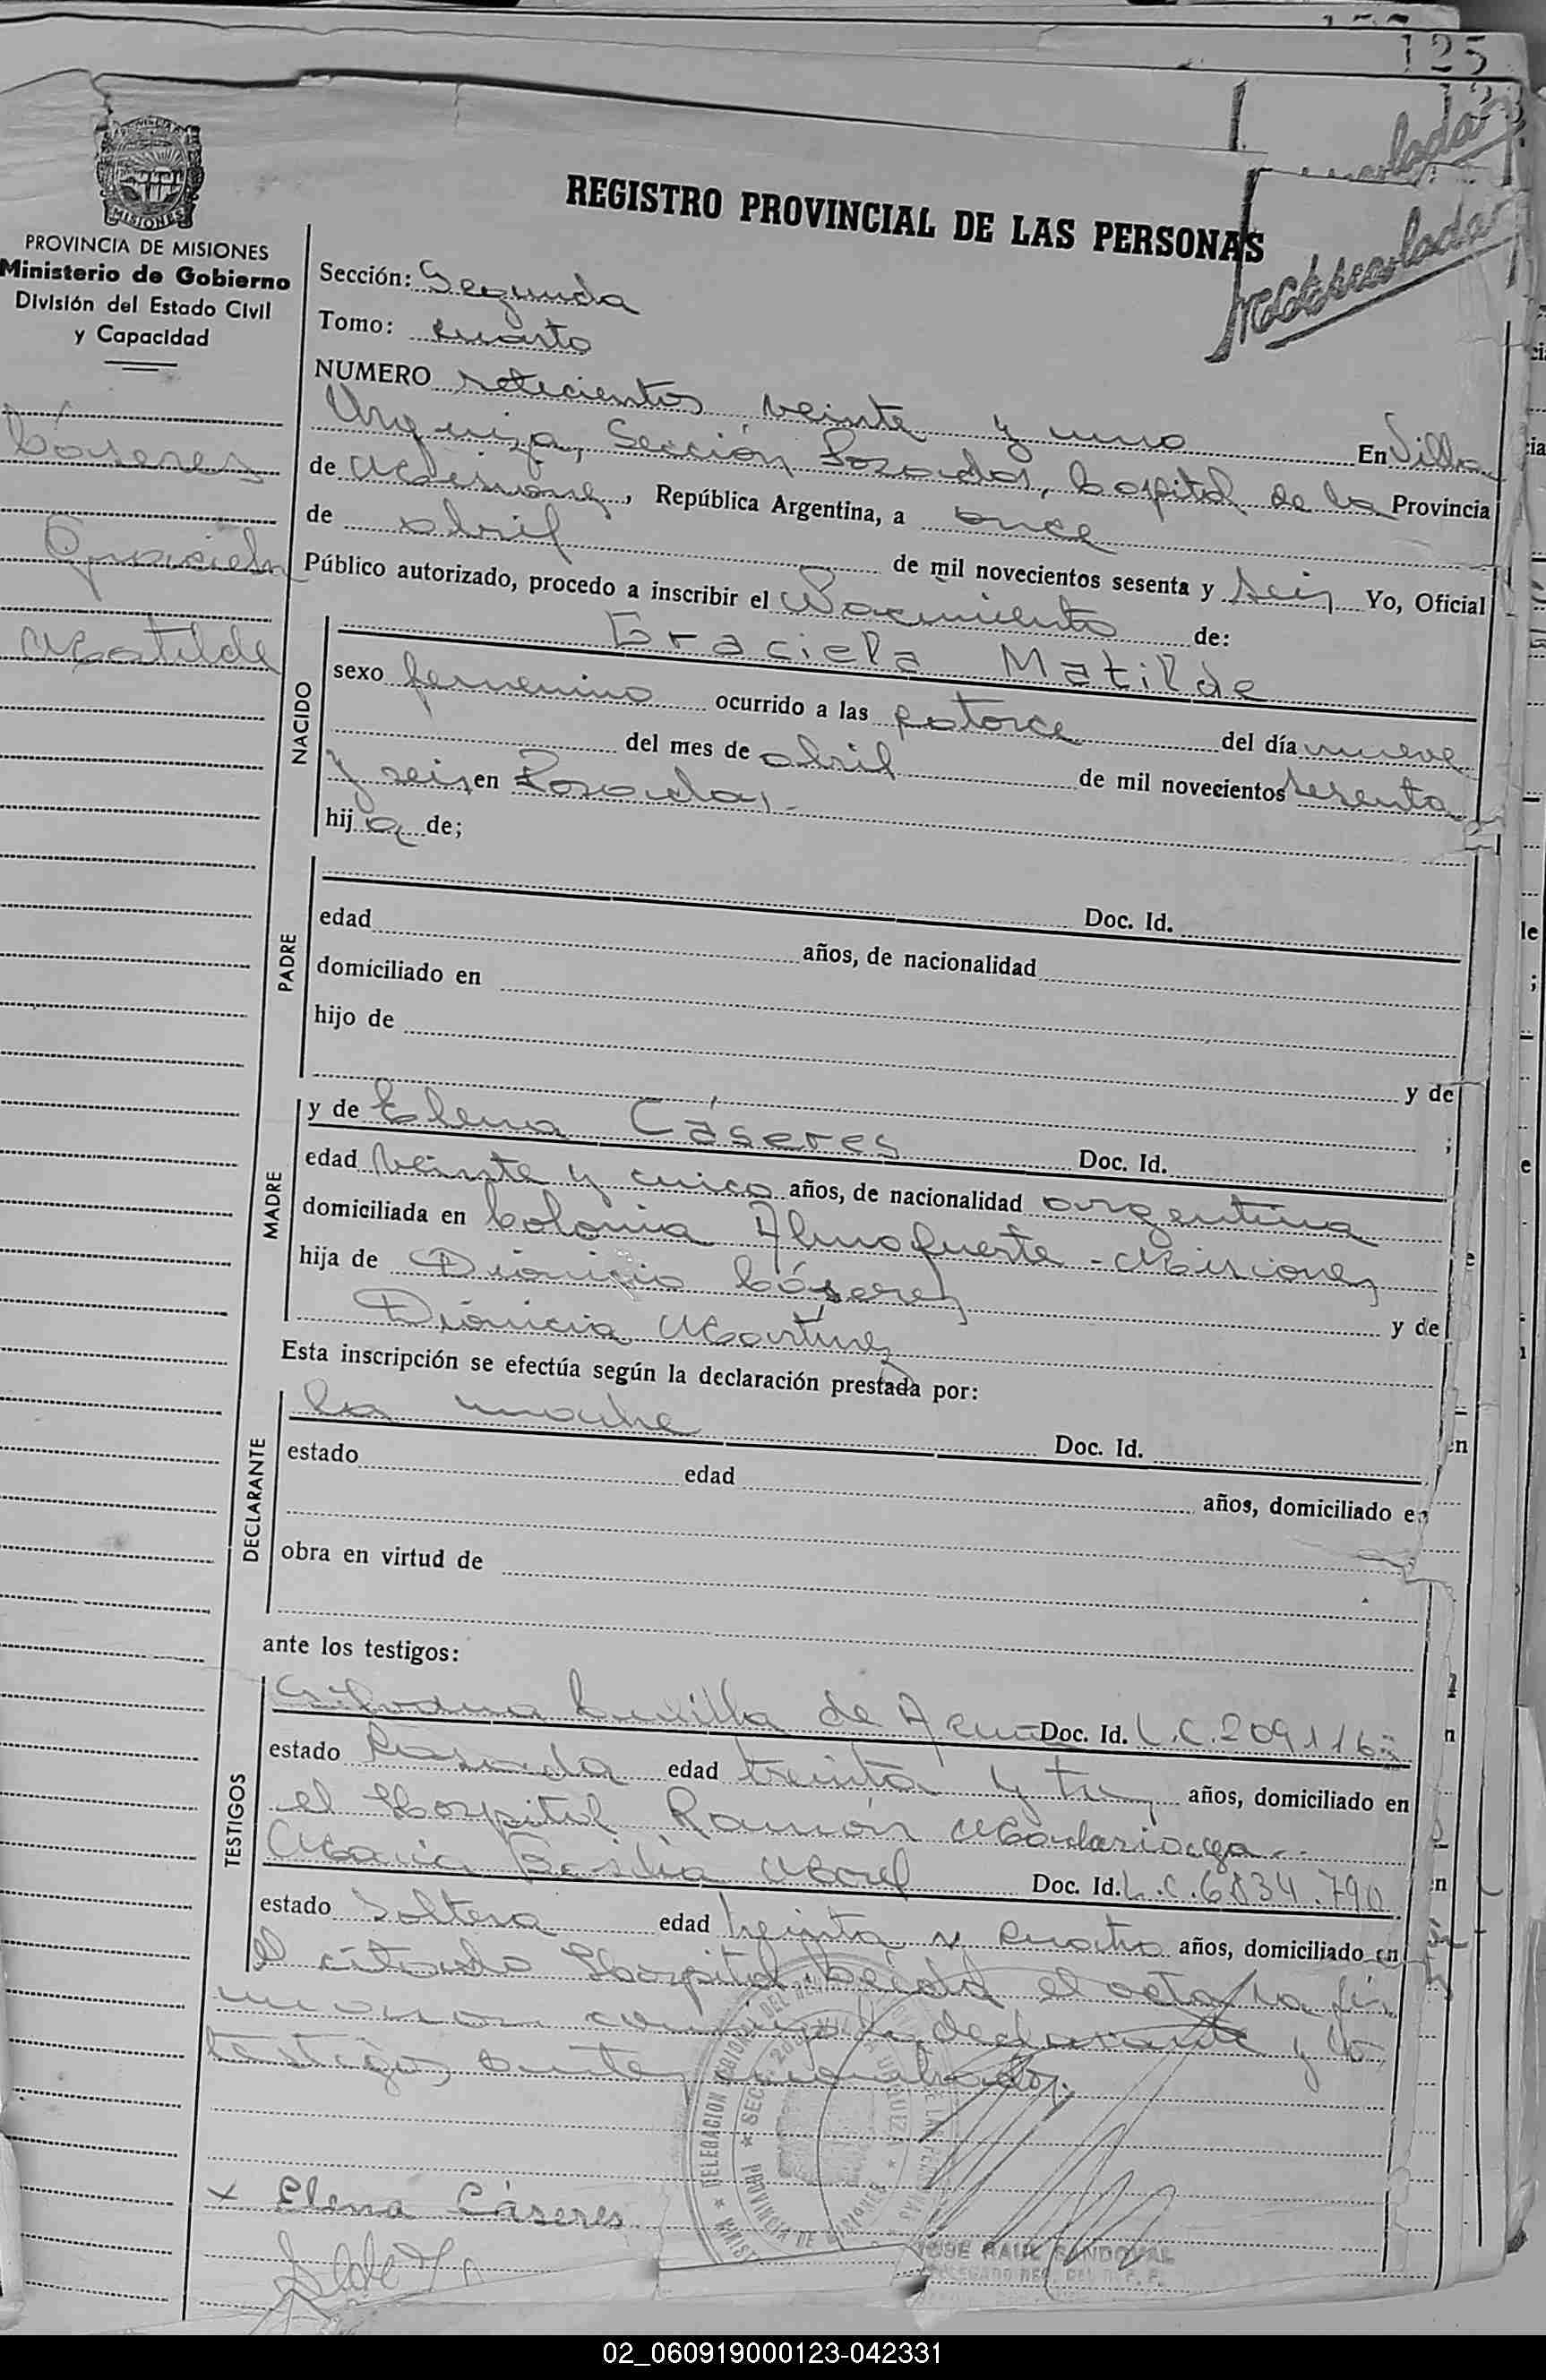 125
Mecanografiada
MISIONES
PROVINCIA DE MISIONES
Ministerio de Gobierno
División del Estado Civil
y Capacidad
Cáseres
Graciela
Matilde
REGISTRO PROVINCIAL DE LAS PERSONAS
Sección: Segunda
Tomo: cuarto
NUMERO setecientos veinte y uno En Villa
Urquiza, Sección Posadas, Capital de la Provincia
de Misiones, República Argentina, a once
de abril de mil novecientos sesenta y seis Yo, Oficial
Público autorizado, procedo a inscribir el Nacimiento de:
NACIDO
Graciela Matilde
sexo femenino ocurrido a las catorce del día nueve
del mes de abril de mil novecientos sesenta
y seis, en Posadas.-
hij a de;
PADRE
Doc. Id.
edad años, de nacionalidad
domiciliado en
hijo de
y de
;
MADRE
y de Elena Cáseres Doc. Id.
edad veinte y cinco años, de nacionalidad argentina
domiciliada en Colonia Almafuerte - Misiones
hija de Dionicio Cáseres y de
Dionicia Martinez
Esta inscripción se efectúa según la declaración prestada por:
DECLARANTE
la madre Doc. Id.
estado edad años, domiciliado en
obra en virtud de
ante los testigos:
TESTIGOS
de Acuña Doc. Id. L.C. 2091163
estado casada edad treinta y tres años, domiciliado en
el Hospital Ramón Madariaga.-
María Morel Doc. Id. L.C. 6834.790
estado soltera edad treinta y cuatro años, domiciliado en
el citado Hospital. Leída el acta la fir
maron conmigo la declarante y los
testigos antes nombrados.
x Elena Cáseres
JOSE RAUL SANDOVAL
02_060919000123-042331